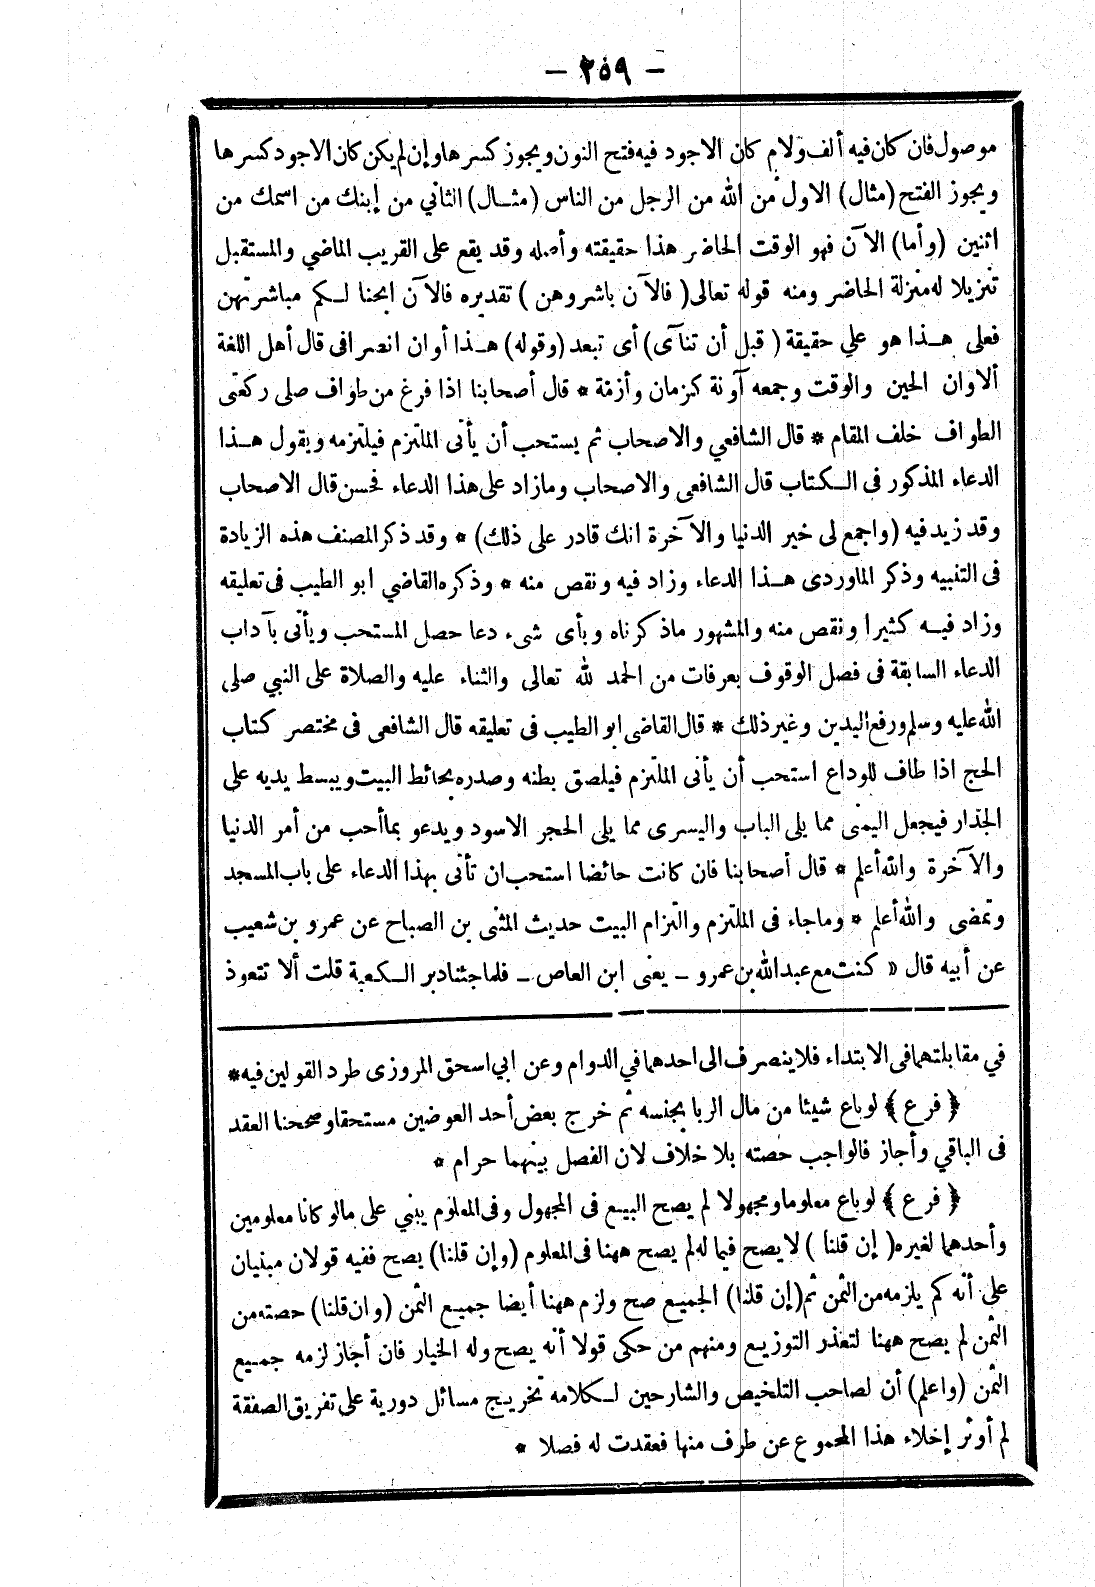 — ٢٥٩ —
موصول فان كان فيه ألف ولام كان الاجود فيه فتح النون ويجوز كسرها وإن لم يكن كان الاجود كسرها
ويجوز الفتح (مثال) الاول من الله من الرجل من الناس (مثال) الثاني من إبنك من اسمك من
اثنين (وأما) الآن فهو الوقت الحاضر هذا حقيقته وأصله وقد يقع على القريب الماضي والمستقبل
تنزيلا له منزلة الحاضر ومنه قوله تعالى (فالآن باشروهن) تقديره فالآن ابحنا لكم مباشرتهن
فعلى هذا هو علي حقيقة (قبل أن تنآى) أى تبعد (وقوله) هذا أوان انصرافى قال أهل اللغة
ألاوان الحين والوقت وجمعه آونة كزمان وأزمنة * قال أصحابنا اذا فرغ من طواف صلى ركعتى
الطواف خلف المقام * قال الشافعي والاصحاب ثم يستحب أن يأتى الملتزم فيلتزمه ويقول هذا
الدعاء المذكور فى الكتاب قال الشافعى والاصحاب ومازاد على هذا الدعاء فحسن قال الاصحاب
وقد زيد فيه (واجمع لى خير الدنيا والآخرة انك قادر على ذلك) * وقد ذكر المصنف هذه الزيادة
فى التنبيه وذكر الماوردى هذا الدعاء وزاد فيه ونقص منه * وذكره القاضي ابو الطيب فى تعليقه
وزاد فيه كثيرا ونقص منه والمشهور ماذكرناه وبأى شىء دعا حصل المستحب ويأتى بآداب
الدعاء السابقة فى فصل الوقوف بعرفات من الحمد لله تعالى والثناء عليه والصلاة على النبي صلى
الله عليه وسلم ورفع اليدين وغير ذلك * قال القاضى ابو الطيب فى تعليقه قال الشافعى فى مختصر كتاب
الحج اذا طاف للوداع استحب أن يأتى الملتزم فيلصق بطنه وصدره بحائط البيت ويبسط يديه على
الجدار فيجعل اليمنى مما يلى الباب واليسرى مما يلى الحجر الاسود ويدعو بما أحب من أمر الدنيا
والآخرة والله أعلم * قال أصحابنا فان كانت حائضا استحب ان تأتى بهذا الدعاء على باب المسجد
وتمضى والله أعلم * وماجاء فى الملتزم والتزام البيت حديث المثنى بن الصباح عن عمرو بن شعيب
عن أبيه قال « كنت مع عبد الله بن عمرو - يعنى ابن العاص - فلما جئنا دبر الكعبة قلت ألا تتعوذ
في مقابلتهما فى الابتداء فلا ينصرف الى احدهما في الدوام وعن ابي اسحق المروزى طرد القولين فيه *
﴿ فرع ﴾ لو باع شيئا من مال الربا بجنسه ثم خرج بعض أحد العوضين مستحقا وصححنا العقد
فى الباقي وأجاز فالواجب حصته بلا خلاف لان الفصل بينهما حرام *
﴿ فرع ﴾ لو باع معلوما ومجهولا لم يصح البيع فى المجهول وفى المعلوم يبني على مالو كانا معلومين
وأحدهما لغيره (إن قلنا) لا يصح فيما له لم يصح ههنا فى المعلوم (وإن قلنا) يصح ففيه قولان مبنيان
على أنه كم يلزمه من الثمن ثم (إن قلنا) الجميع صح ولزم ههنا أيضا جميع الثمن (وان قلنا) حصته من
الثمن لم يصح ههنا لتعذر التوزيع ومنهم من حكى قولا أنه يصح وله الخيار فان أجاز لزمه جميع
الثمن (واعلم) أن لصاحب التلخيص والشارحين لكلامه تخريج مسائل دورية على تفريق الصفقة
لم أوثر إخلاء هذا المجموع عن طرف منها فعقدت له فصلا *